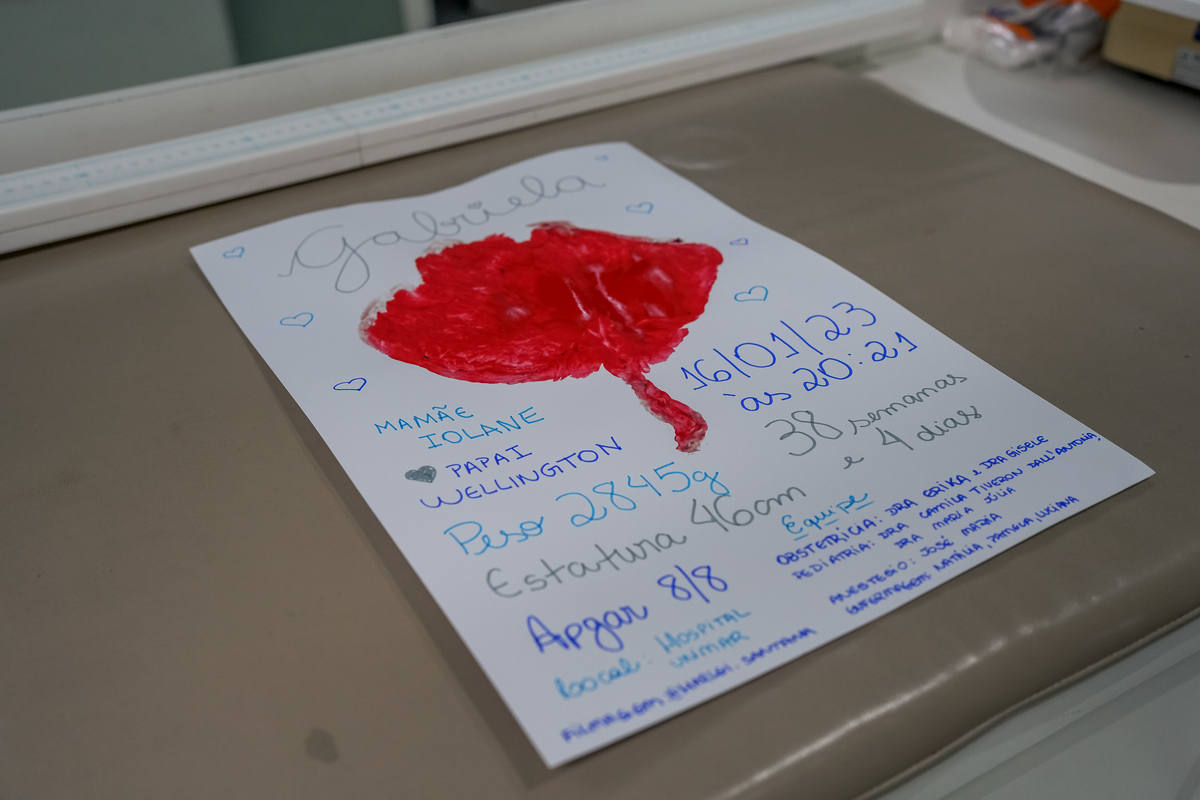 Gabriela
16/01/23
às 20:21
38 semanas
e 4 dias
MAMÃE
IOLANE
PAPAI
WELLINGTON
Peso 2845g
Estatura 46cm
Apgar 8/8
Local: HOSPITAL
UNIMAR
Equipe
OBSTETRÍCIA: DRA ERIKA e DRA GISELE
PEDIATRIA: DRA CAMILA TIVERON DALL'ANTONIA,
DRA MARIA JÚLIA
ANESTESIO: JOSÉ MARIA
ENFERMAGEM: NATÁLIA, PAMELA, LUCIANA
FILMAGEM SANTANA